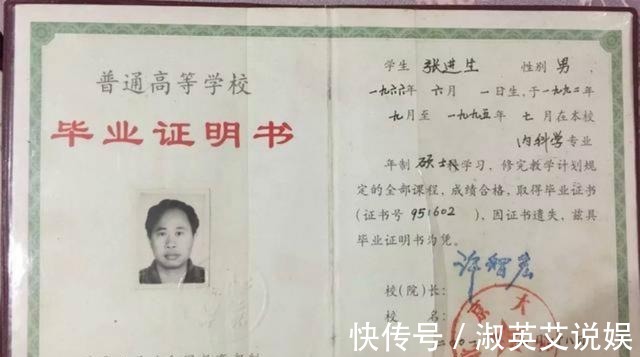 普通高等学校
毕业证明书
学生 张进生 性别 男
一九六六年 六月 一日生,于一九九二年
九月至 一九九五年 七月在本校
内科学专业
年制 硕士 学习,修完教学计划规
定的全部课程,成绩合格,取得毕业证书
(证书号 951602 ),因证书遗失,兹具
毕业证明书为凭。
许智宏
校(院)长:
校 名:
京 大
快传号/淑英艾说娱